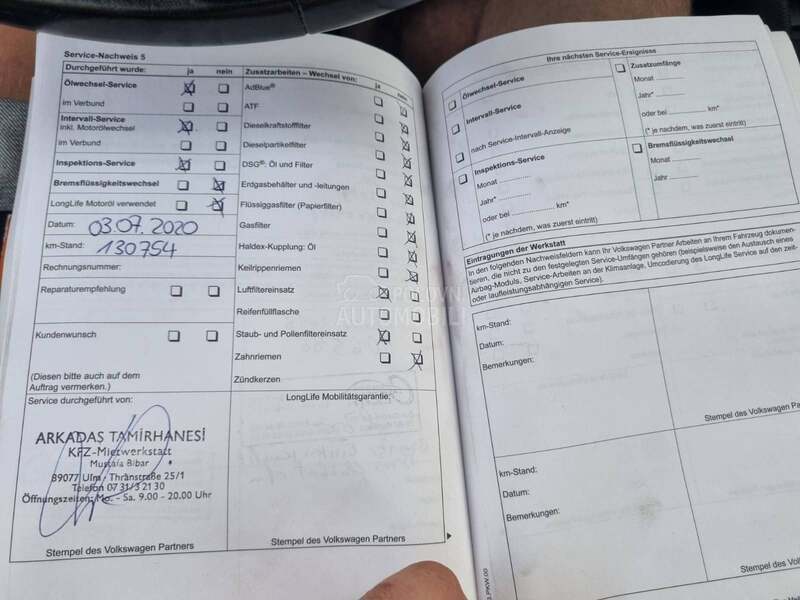 Service-Nachweis 5
Durchgeführt wurde: ja nein
Ölwechsel-Service
im Verbund
Intervall-Service
inkl. Motorölwechsel
im Verbund
Inspektions-Service
Bremsflüssigkeitswechsel
LongLife Motoröl verwendet
Datum: 03.07.2020
km-Stand: 130754
Rechnungsnummer:
Reparaturempfehlung
Kundenwunsch
(Diesen bitte auch auf dem
Auftrag vermerken.)
Zusatzarbeiten – Wechsel von: ja nein
AdBlue®
ATF
Dieselkraftstofffilter
Dieselpartikelfilter
DSG®: Öl und Filter
Erdgasbehälter und -leitungen
Flüssiggasfilter (Papierfilter)
Gasfilter
Haldex-Kupplung: Öl
Keilrippenriemen
Luftfiltereinsatz
Reifenfüllflasche
Staub- und Pollenfiltereinsatz
Zahnriemen
Zündkerzen
Service durchgeführt von:
ARKADAŞ TAMİRHANESİ
KFZ-Mietwerkstatt
Mustafa Bibar
89077 Ulm - Thränstraße 25/1
Telefon 07 31/3 21 30
Öffnungszeiten: Mo. - Sa. 9.00 - 20.00 Uhr
Stempel des Volkswagen Partners
LongLife Mobilitätsgarantie:
Stempel des Volkswagen Partners
POLOVNI
AUTOMOBILI
Ihre nächsten Service-Ereignisse
Ölwechsel-Service
Intervall-Service
nach Service-Intervall-Anzeige
Inspektions-Service
Monat
Jahr*
oder bei km*
(* je nachdem, was zuerst eintritt)
Zusatzumfänge
Monat
Jahr*
oder bei km*
(* je nachdem, was zuerst eintritt)
Bremsflüssigkeitswechsel
Monat
Jahr
Eintragungen der Werkstatt
In den folgenden Nachweisfeldern kann Ihr Volkswagen Partner Arbeiten an Ihrem Fahrzeug dokumen-
tieren, die nicht zu den festgelegten Service-Umfängen gehören (beispielsweise den Austausch eines
Airbag-Moduls, Service-Arbeiten an der Klimaanlage, Umcodierung des LongLife Service auf den zeit-
oder laufleistungsabhängigen Service).
km-Stand:
Datum:
Bemerkungen:
Stempel des Volkswagen Partn
km-Stand:
Datum:
Bemerkungen:
Stempel des Volks